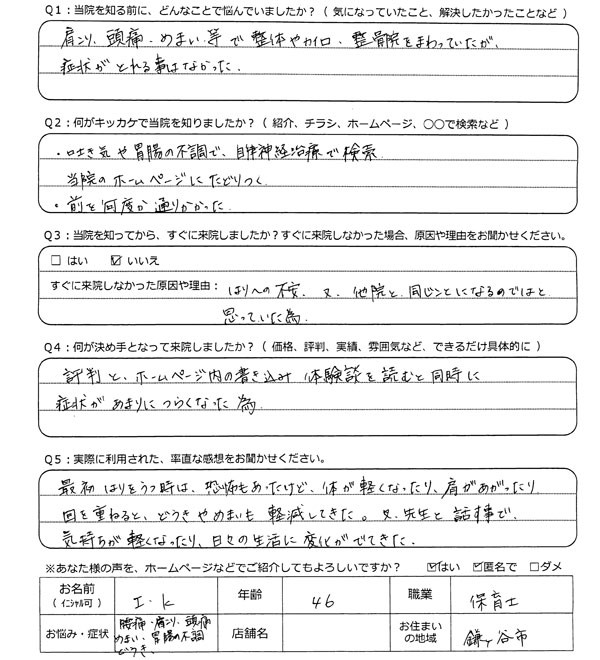 Q1：当院を知る前に、どんなことで悩んでいましたか？（ 気になっていたこと、解決したかったことなど ）
肩こり、頭痛・めまい等で整体やカイロ・整骨院をまわっていたが、
症状がとれる事はなかった.
Q2：何がキッカケで当院を知りましたか？（ 紹介、チラシ、ホームページ、○○で検索など ）
・吐き気や胃腸の不調で、自律神経治療で検索.
当院のホームページにたどりつく.
・前を何度か通りかかった.
Q3：当院を知ってから、すぐに来院しましたか？すぐに来院しなかった場合、原因や理由をお聞かせください。
□ はい ☑ いいえ
すぐに来院しなかった原因や理由： はりへの不安. 又. 他院と同じことになるのではと
思っていた為.
Q4：何が決め手となって来院しましたか？（ 価格、評判、実績、雰囲気など、できるだけ具体的に ）
評判と、ホームページ内の書き込み 体験談を読むと同時に
症状があまりにつらくなった為.
Q5：実際に利用された、率直な感想をお聞かせください。
最初はりをうつ時は、恐怖もあったけど、体が軽くなったり、肩があがったり.
回を重ねると、どうきやめまいも軽減してきた。又. 先生と話す事で.
気持ちが軽くなったり、日々の生活に変化がでてきた.
※あなた様の声を、ホームページなどでご紹介してもよろしいですか？ ☑はい ☑匿名で □ダメ
お名前
（ イニシャル可 ） I・K 年齢 46 職業 保育士
お悩み・症状 腰痛・肩こり・頭痛
めまい・胃腸の不調
どうき. 店舗名 お住まい
の地域 鎌ヶ谷市